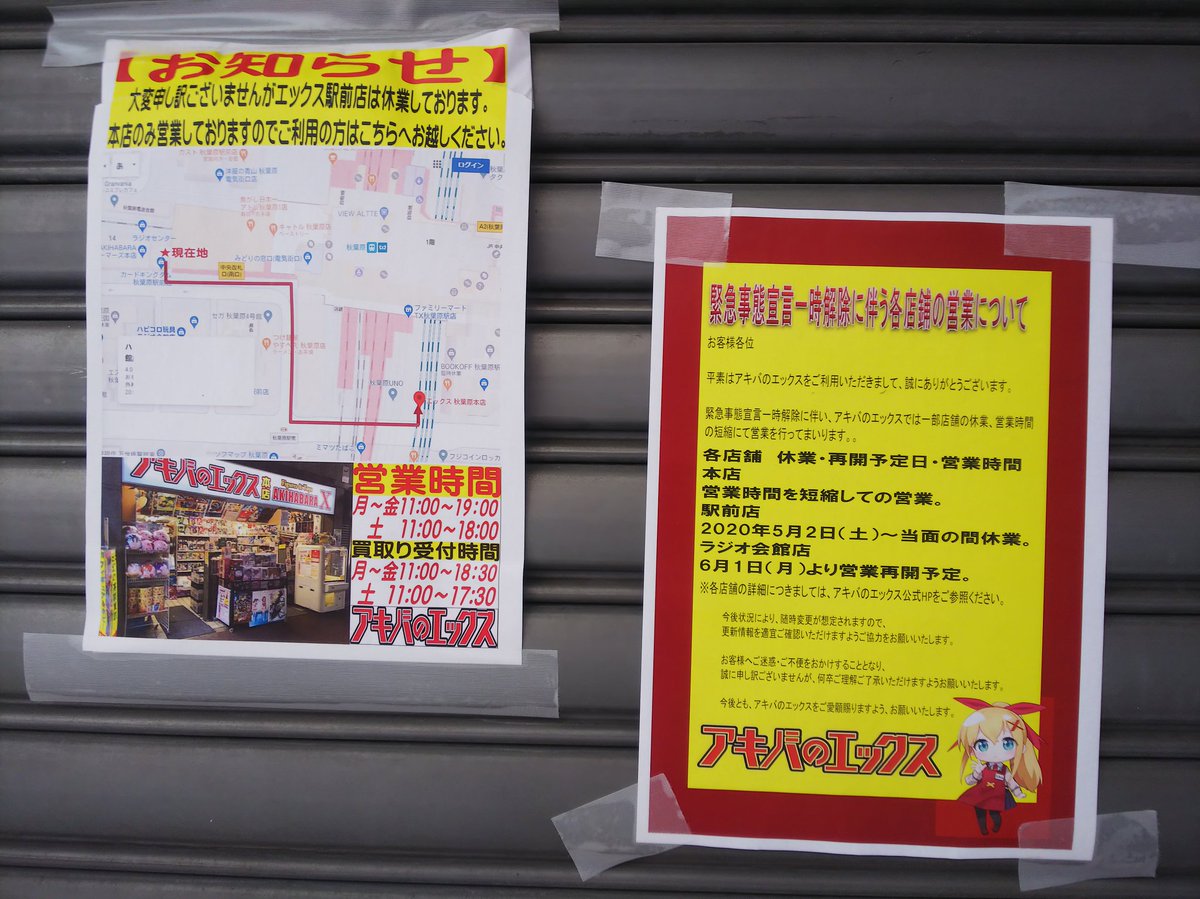 【お知らせ】
大変申し訳ございませんがエックス駅前店は休業しております。
本店のみ営業しておりますのでご利用の方はこちらへお越しください。
ログイン
洋服の青山 秋葉原
電気街口店
VIEW ALTTE
A3(秋葉原
キャトル 秋葉原店
14
ラジオセンター
★現在地
中央改札
口(南口)
みどりの窓口(電気街口)
秋葉原
1階
AKIHABARA
カードキングダム
秋葉原駅前店
セガ 秋葉原4号館
ファミリーマート
TX秋葉原駅店
ハピコロ玩具
BOOKOFF 秋葉原駅
秋葉原UNO
エックス 秋葉原本店
ミマツたばこ
フジコインロッカ
アキバのエックス 本店 AKIHABARA X
営業時間
月～金11:00～19:00
土 11:00～18:00
買取り受付時間
月～金11:00～18:30
土 11:00～17:30
アキバのエックス
緊急事態宣言一時解除に伴う各店舗の営業について
お客様各位
平素はアキバのエックスをご利用いただきまして、誠にありがとうございます。
緊急事態宣言一時解除に伴い、アキバのエックスでは一部店舗の休業、営業時間
の短縮にて営業を行ってまいります。。
各店舗 休業・再開予定日・営業時間
本店
営業時間を短縮しての営業。
駅前店
2020年5月2日(土)～当面の間休業。
ラジオ会館店
6月1日(月)より営業再開予定。
※各店舗の詳細につきましては、アキバのエックス公式HPをご参照ください。
今後状況により、随時変更が想定されますので、
更新情報を適宜ご確認いただけますようご協力をお願いいたします。
お客様へご迷惑・ご不便をおかけすることとなり、
誠に申し訳ございませんが、何卒ご理解ご了承いただけますようお願いいたします。
今後とも、アキバのエックスをご愛顧賜りますよう、お願いいたします。
アキバのエックス